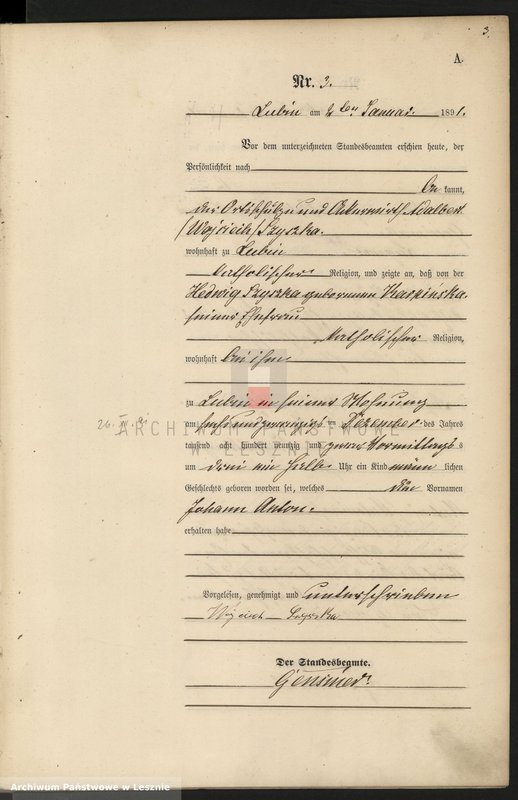 3.
A.
Nr. 3.
Lubin am 2ten Januar 1891.
Vor dem unterzeichneten Standesbeamten erschien heute, der
Persönlichkeit nach
be kannt,
der Ortsschulze und Ackerwirth Adalbert
/Wojciech/ Szyszka.
wohnhaft zu Lubin
katholischer Religion, und zeigte an, daß von der
Hedwig Szyszka geborenen
seiner Ehefrau
katholischer Religion,
wohnhaft bei ihm
zu Lubin in seiner Wohnung
am sechsundzwanzigsten Dezember des Jahres
tausend acht hundert neunzig und zwar Vormittags
um drei ein halb Uhr ein Kind männ lichen
Geschlechts geboren worden sei, welches die Vornamen
Johann Anton.
erhalten habe
Vorgelesen, genehmigt und unterschrieben
Wojciech Szyszka
Der Standesbeamte.
Gensmer
ARCHIWUM PAŃSTWOWE
W LESZNIE
Archiwum Państwowe w Lesznie